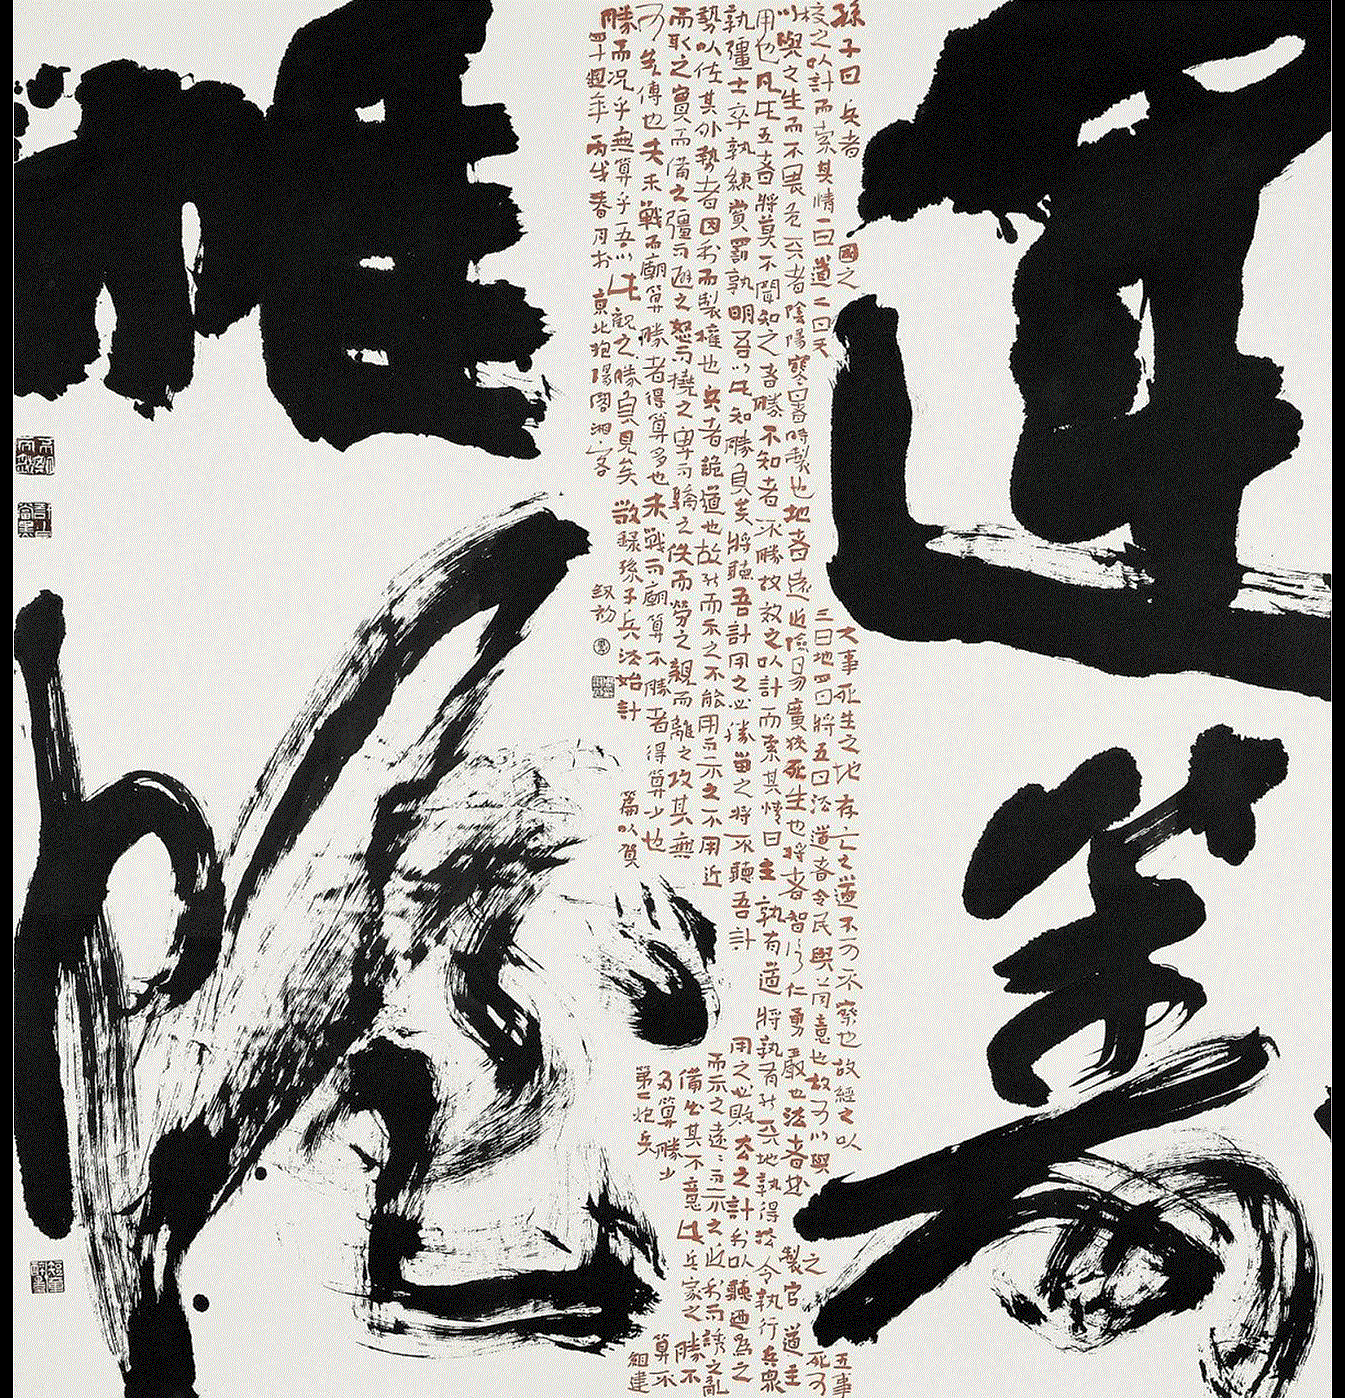 運籌
帷幄
孫子曰兵者國之大事死生之地存亡之道不可不察也故經之以五事
校之以計而索其情一曰道二曰天三曰地四曰將五曰法道者令民與上同意也故可以與之死可
以與之生而不畏危天者陰陽寒暑時製也地者遠近險易廣狹死生也將者智信仁勇嚴也法者曲製官道主
用也凡此五者將莫不聞知之者勝不知者不勝故效之以計而索其情曰主孰有道將孰有能天地孰得法令孰行兵衆
孰彊士卒孰練賞罰孰明吾以此知勝負矣將聽吾計用之必勝留之將不聽吾計用之必敗去之計利以聽迺為之
勢以佐其外勢者因利而製權也兵者詭道也故能而示之不能用而示之不用近而示之遠遠而示之近利而誘之亂
而取之實而備之彊而避之怒而撓之卑而驕之佚而勞之親而離之攻其無備出其不意此兵家之勝不
可先傳也夫未戰而廟算勝者得算多也未戰而廟算不勝者得算少也多算勝少算不
勝而況乎無算乎吾以此觀之勝負見矣敬錄孫子兵法始計篇以賀第二炮兵組建
四十週年丙戌春月於京北抱陽閣湘客